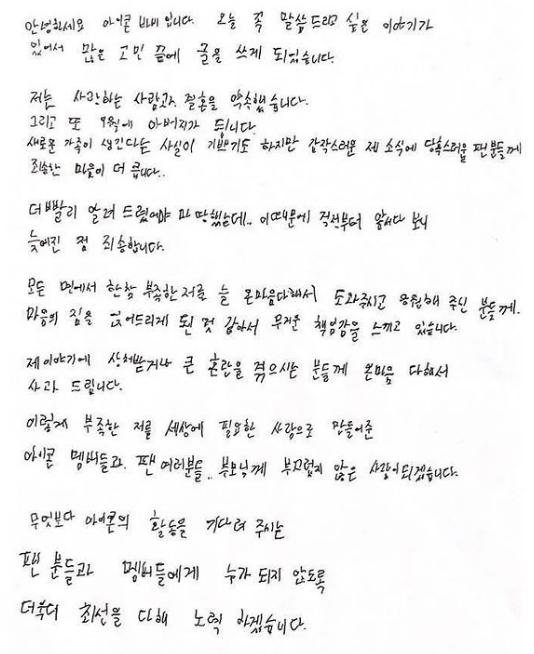 안녕하세요 아이콘 바비입니다. 오늘 꼭 말씀드리고 싶은 이야기가
있어서 많은 고민 끝에 글을 쓰게 되었습니다.
저는 사랑하는 사람과 결혼을 약속했습니다.
그리고 또 9월에 아버지가 됩니다.
새로운 가족이 생긴다는 사실이 기쁘기도 하지만 갑작스러운 제 소식에 당혹스러울 팬분들께
죄송한 마음이 더 큽니다..
더 빨리 알려 드렸어야 마땅했는데.. 이 때문에 걱정부터 앞서다 보니
늦어진 점 죄송합니다.
모든 면에서 한참 부족한 저를 늘 온 마음 다해서 도와주시고 응원해 주신 분들께.
마음의 짐을 얹어드리게 된 것 같아서 무거운 책임감을 느끼고 있습니다.
제 이야기에 상처받거나 큰 혼란을 겪으시는 분들께 온 마음 다해서
사과 드립니다.
이렇게 부족한 저를 세상에 필요한 사람으로 만들어준
아이콘 멤버들과, 팬 여러분들.. 부모님께 부끄럽지 않은 사람이 되겠습니다.
무엇보다 아이콘의 활동을 기다려 주시는
팬 분들과 멤버들에게 누가 되지 않도록
더욱더 최선을 다해 노력 하겠습니다.